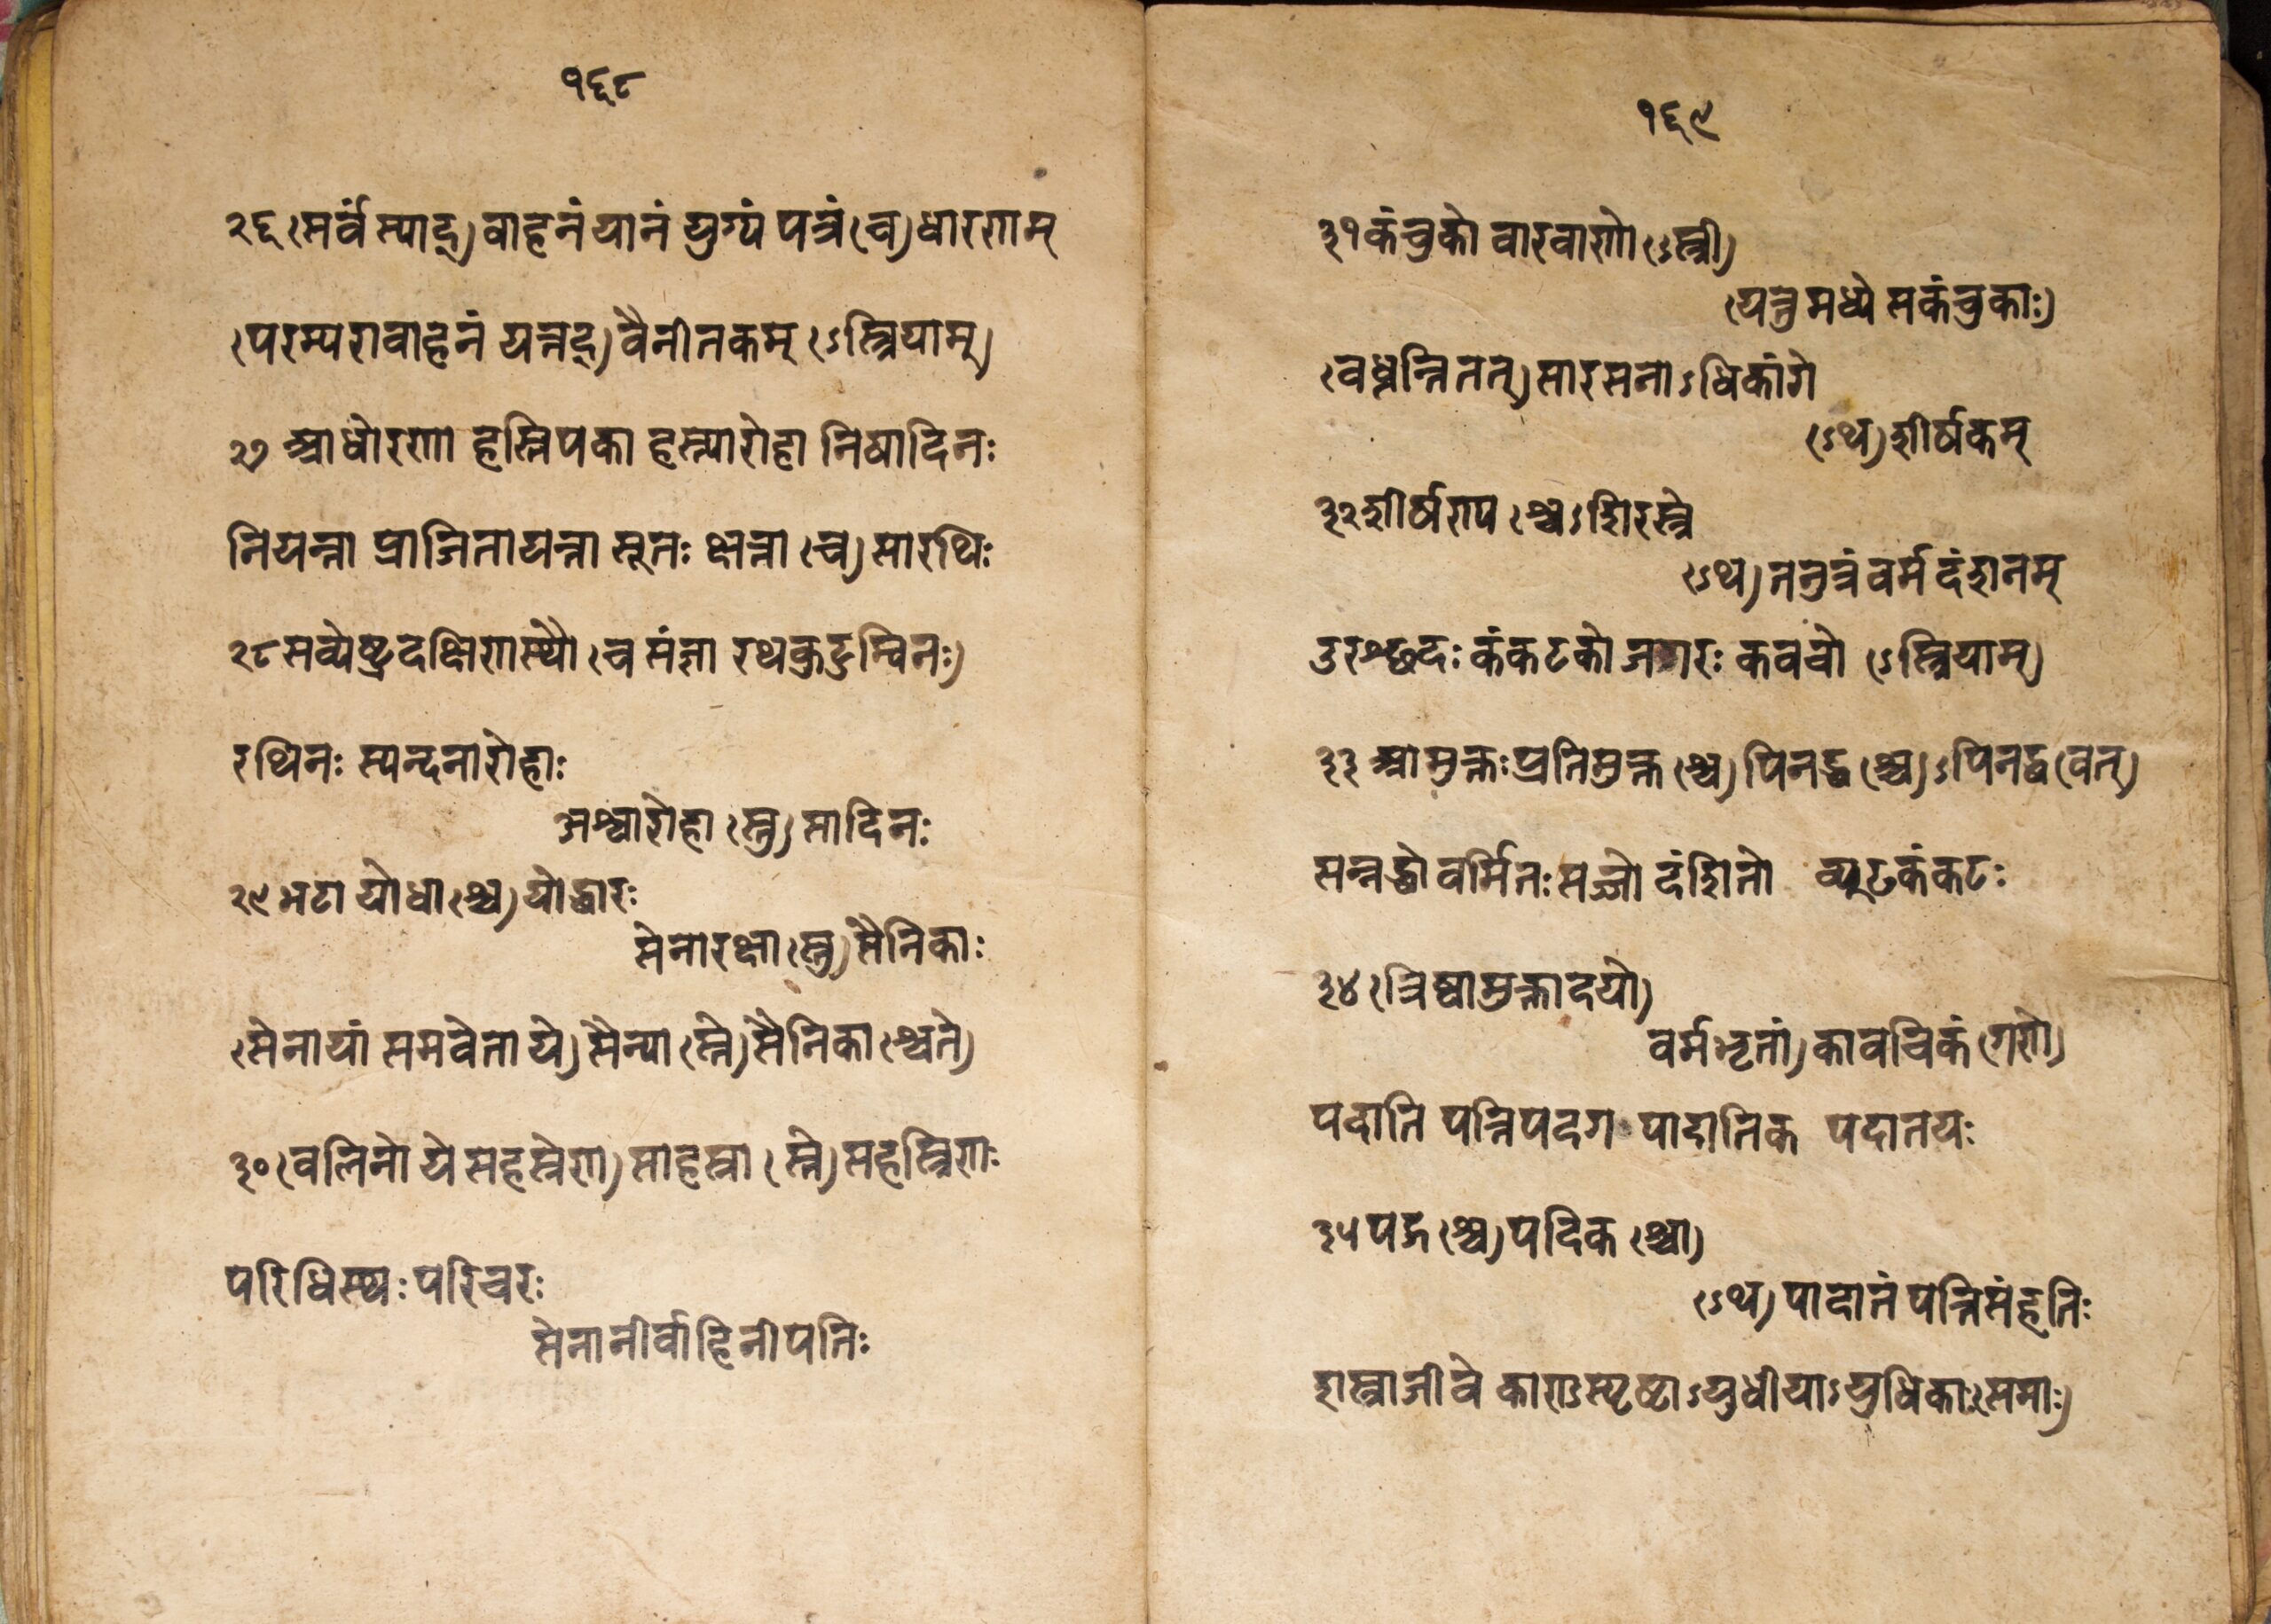 १६८
२६ (सर्वं स्याद्) वाहनं यानं युग्यं पत्रं (च) धारणम्
(परम्परावाहनं यत्तद्) वैनीतकम् (ऽस्त्रियाम्)
२७ आधोरणा हस्तिपका हस्त्यारोहा निषादिनः
नियन्ता प्राजिता यन्ता सूतः क्षत्ता (च) सारथिः
२८ सव्येष्ट्रदक्षिणस्थौ (च संज्ञा रथकुटुम्बिनः)
रथिनः स्यन्दनारोहाः
अश्वारोहा (स्तु) सादिनः
२९ भटा योधा (श्च) योद्धारः
सेनारक्षा (स्तु) सैनिकाः
(सेनायां समवेता ये) सैन्या (स्ते) सैनिका (श्चते)
३० (वलिनो ये सहस्रेण) साहस्रा (स्ते) सहस्रिणः
परिधिस्थः परिचरः
सेनानीर्वाहिनीपतिः
१६९
३१ कंचुको वारवाणो (ऽस्त्री)
(यत्तु मध्ये सकंचुकाः)
(वध्नन्ति तत्) सारसनो ऽधिकांगो
(ऽथ) शीर्षकम्
३२ शीर्षण्य (श्च) ऽशिरस्त्रे
(ऽथ) तनुत्रं वर्म दंशनम्
उरश्छदः कंकटको जगरः कवचो (ऽस्त्रियाम्)
३३ आमुक्तः प्रतिमुक्त (श्च) पिनद्ध (श्च) ऽपिनद्ध (वत्)
सन्नद्धो वर्मितः सज्जो दंशितो व्यूढकंकटः
३४ (त्रिष्वामुक्तादयो)
वर्मभृतां) कावचिकं (गणे)
पदाति पत्ति पदग पादातिक पदातयः
३५ पद्ग (श्च) पदिक (श्चा)
(ऽथ) पादातं पत्तिसंहतिः
शस्त्राजीवे काण्डस्पृष्टाऽयुधीयाऽयुधिकाः (समाः)